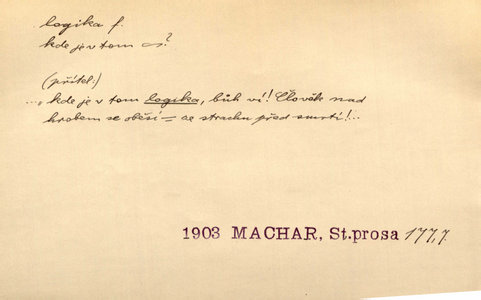 logika f.
kde je v tom ~?
(přítel:)
..., kde je v tom logika, bůh ví! Člověk nad
hrobem se oběsí = ze strachu před smrtí!..
1903 MACHAR, St.prosa 177,7.